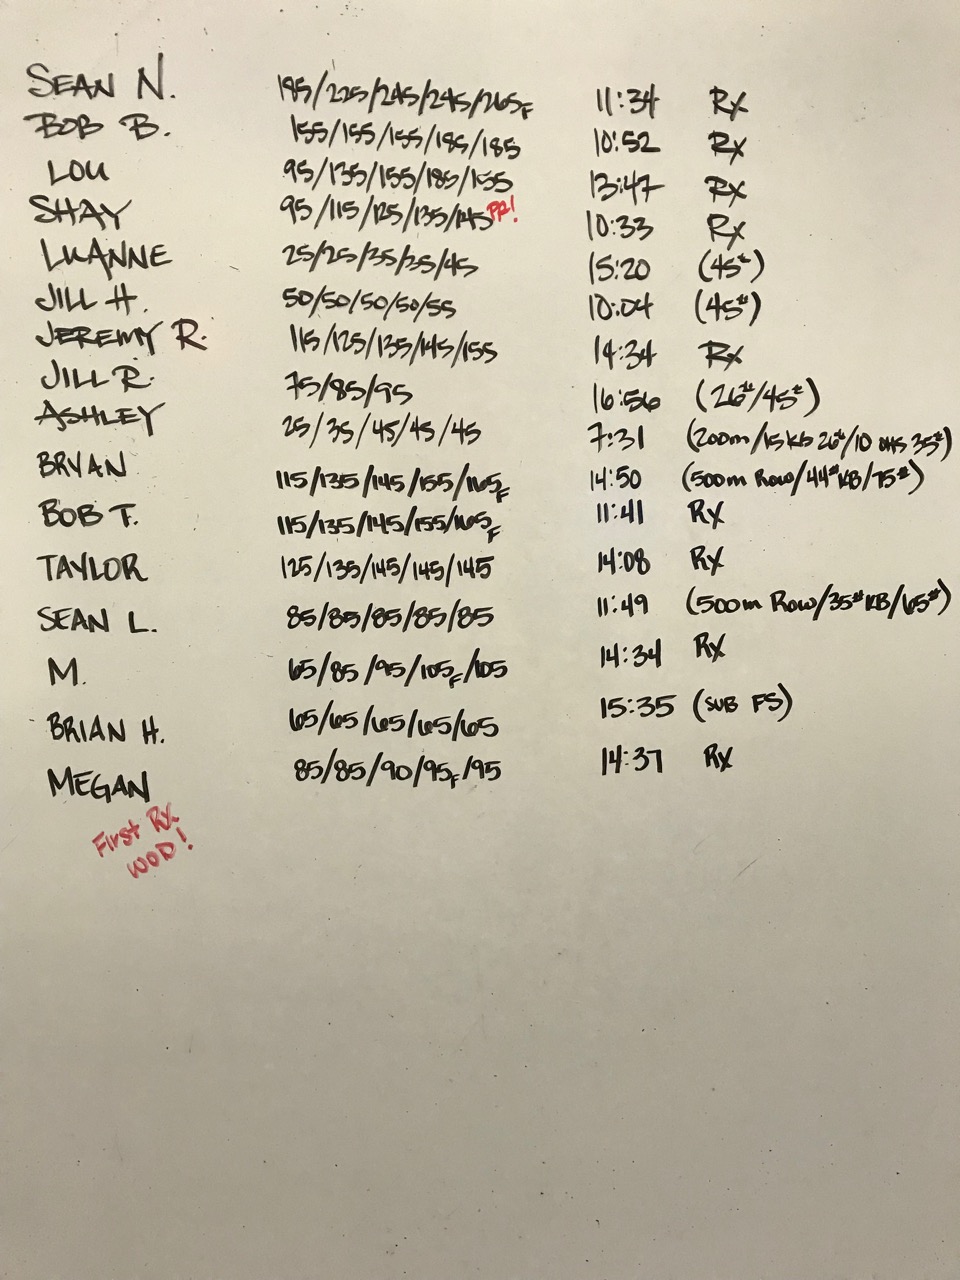 SEAN N. 185/225/245/245/265F 11:34 Rx
BOB B. 155/155/155/185/185 10:52 Rx
LOU 95/135/155/185/155 13:47 Rx
SHAY 95/115/125/135/145 PR! 10:33 Rx
LUANNE 25/25/35/35/45 15:20 (45#)
JILL H. 50/50/50/50/55 10:04 (45#)
JEREMY R. 115/125/135/145/155 14:34 Rx
JILL R. 75/85/95 16:56 (26#/45#)
ASHLEY 25/35/45/45/45 7:31 (200m/15 KB 26#/10 OHS 35#)
BRYAN 115/135/145/155/165F 14:50 (500m Row/44# KB/75#)
BOB T. 115/135/145/155/165F 11:41 Rx
TAYLOR 125/135/145/145/145 14:08 Rx
SEAN L. 85/85/85/85/85 11:49 (500m Row/35# KB/65#)
M. 65/85/95/105F/105 14:34 Rx
BRIAN H. 65/65/65/65/65 15:35 (SUB FS)
MEGAN 85/85/90/95F/95 14:37 Rx
First Rx
WOD!